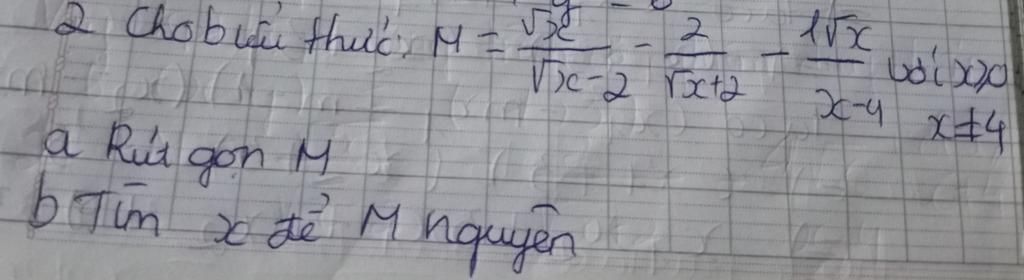 2 Cho biểu thức: M = √x/(√x-2) - 2/(√x+2) - 1√x/(x-4) với x>0 x≠4
a Rút gọn M
b Tìm x để M nguyên